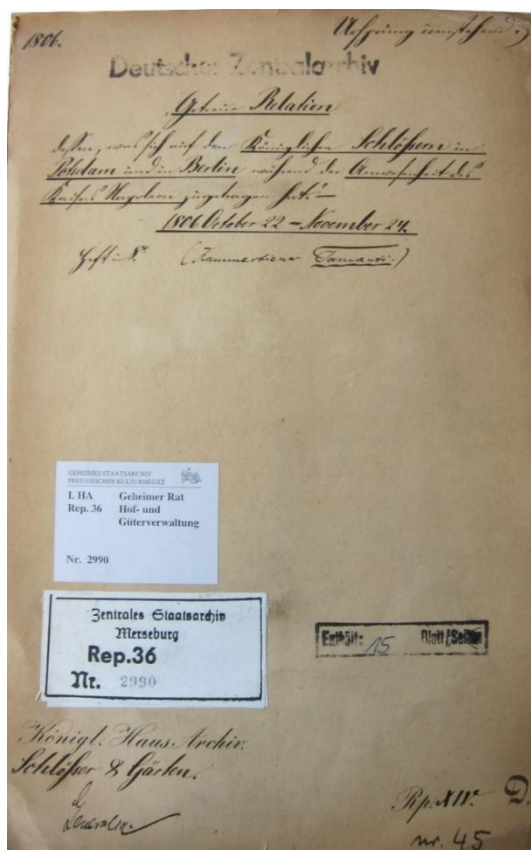 1806.
Ursprung umstehend.
Deutsches Zentralarchiv
Getreue Relation
dessen, was sich auf den Königlichen Schlössern in
Potsdam und in Berlin während der Anwesenheit des
Kaisers Napoleon zugetragen hat.
1806 October 22 – November 24.
Heft in 8º (Kammerdiener Tamanti.)
GEHEIMES STAATSARCHIV
PREUSSISCHER KULTURBESITZ
I. HA Geheimer Rat
Rep. 36 Hof- und
Güterverwaltung
Nr. 2990
Zentrales Staatsarchiv
Merseburg
Rep.36
Nr. 2990
Enthält: 15 Blatt/Seiten
Königl. Haus-Archiv.
Schlösser & Gärten.
Generalia.
Rp. XIV.
nr. 45